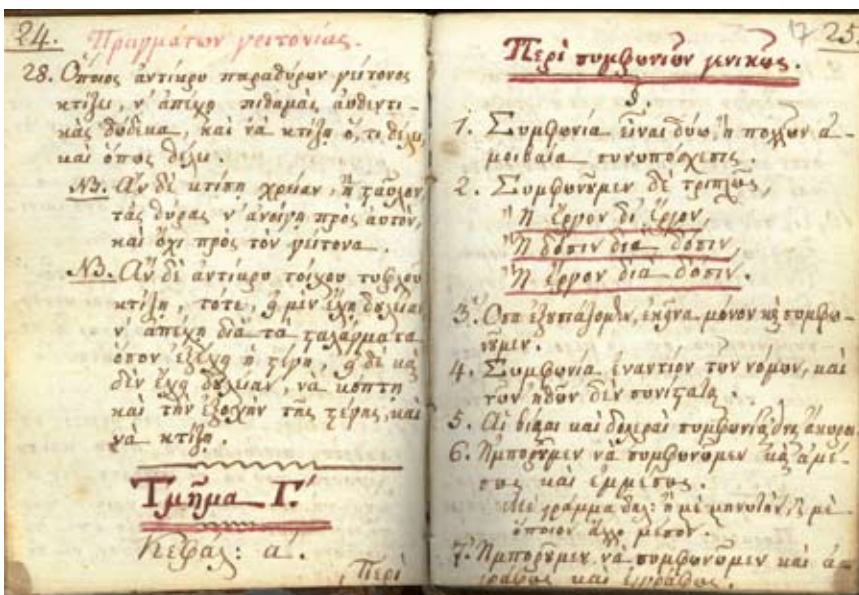 24.
Πραγμάτων γειτονίας.
28. Όποιος αντίκρυ παραθύρων γείτονος
κτίζει, ν' απέχῃ πιθαμὰς αυθεντι-
κὰς δώδεκα, καὶ νὰ κτίζῃ ό,τι θέλει,
καὶ όπως θέλει.
ΝΒ. Αν δὲ κτίσῃ χρείαν, ή
τὰς θύρας ν' ανοίγῃ πρὸς αυτὸν,
καὶ όχι πρὸς τὸν γείτονα.
ΝΒ. Αν δὲ αντίκρυ τοίχου τυφλού
κτίζῃ, τότε, μὲν έχῃ
ν' απέχῃ διὰ τὰ
όπου εξέχῃ ή, δὲ καὶ
δὲν έχῃ, νὰ κόπτῃ
καὶ τὴν εξοχὴν τῆς, καὶ
νὰ κτίζῃ.
Τμῆμα Γ΄.
Κεφάλ: α΄.
Περὶ
17 25.
Περὶ συμφωνιῶν γενικῶς.
§.
1. Συμφωνία εἶναι δύω, ἢ πολλῶν ἀ-
μοιβαία συνυπόσχεσις.
2. Συμφωνοῦμεν δὲ τριπλῶς,
Ἢ ἔργον δι' ἔργον,
Ἢ δόσιν διὰ δόσιν,
Ἢ ἔργον διὰ δόσιν.
3. Ὅσα ἐξουσιάζομεν, ἐκεῖνα μόνον καὶ συμφω-
νοῦμεν.
4. Συμφωνία ἐναντίον των νόμων, καὶ
τῶν ἠθῶν δὲν συνίσταται.
5. Αἱ βίαιαι καὶ δολεραὶ συμφωνίαι ἄκυροι.
6. Ἠμποροῦμεν νὰ συμφωνῶμεν καὶ ἀμέ-
σως καὶ ἐμμέσως.
Μὲ γράμμα δηλ: ἢ μὲ μηνυτὴν, ἢ μὲ
ὁποῖον ἄλλο μέσον.
7. Ἠμποροῦμεν νὰ συμφωνῶμεν καὶ ἀ-
γράφως καὶ ἐγγράφως.